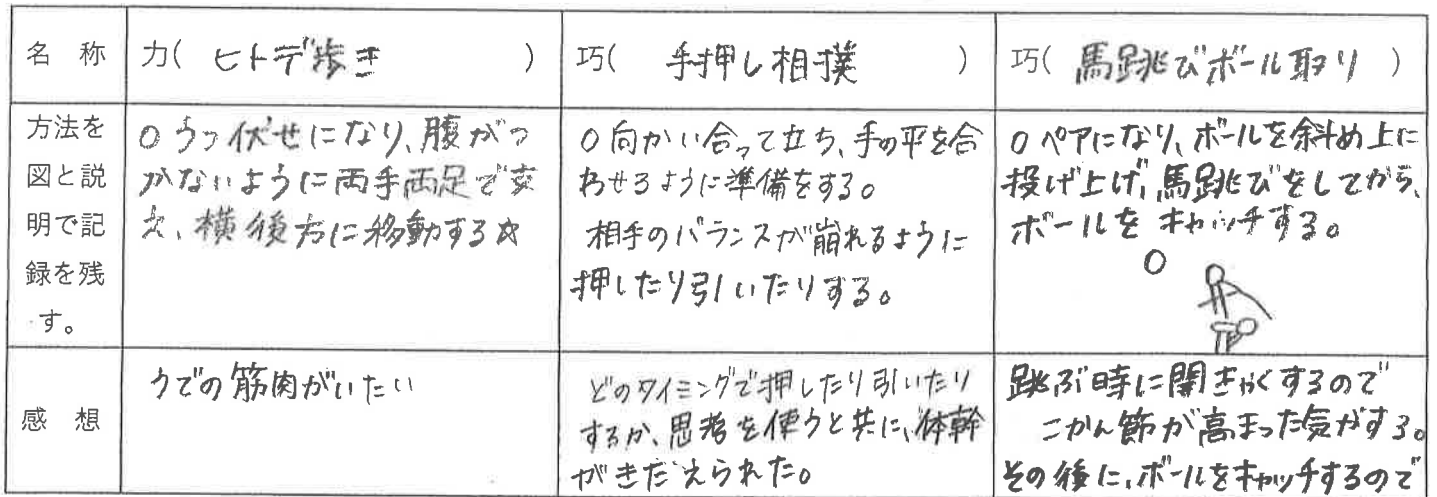 名 称
力( ヒトデ歩き )
巧( 手押し相撲 )
巧( 馬跳びボール取り )
方法を
図と説
明で記
録を残
す。
○うつ伏せになり、腹がつ
かないように両手両足で支
え、横後方に移動する☆
○向かい合って立ち、手の平を合
わせるように準備をする。
相手のバランスが崩れるように
押したり引いたりする。
○ペアになり、ボールを斜め上に
投げ上げ、馬跳びをしてから、
ボールをキャッチする。
感 想
うでの筋肉がいたい
どのタイミングで押したり引いたり
するか、思考を使うと共に、体幹
がきたえられた。
跳ぶ時に開きゃくするので
こかん節が高まった気がする。
その後に、ボールをキャッチするので